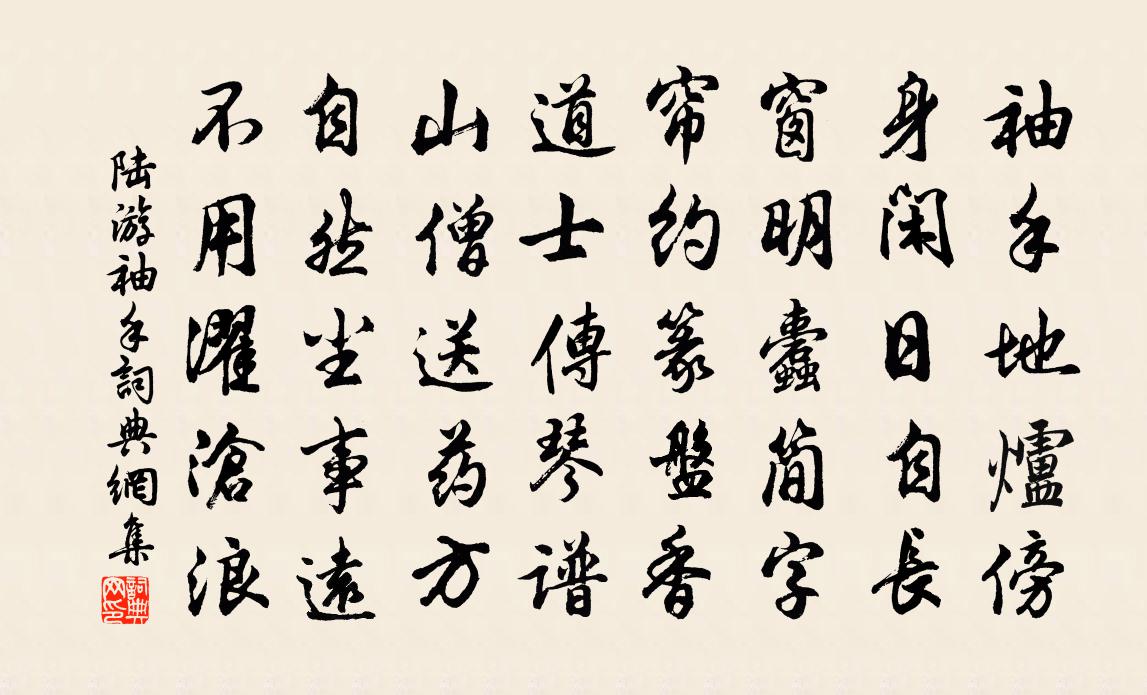 袖手地爐傍
身閑日自長
窗明蠹簡字
帘約篆盤香
道士傳琴譜
山僧送药方
自然尘事遠
不用濯滄浪
陆游袖手詞典網集
詞典網印